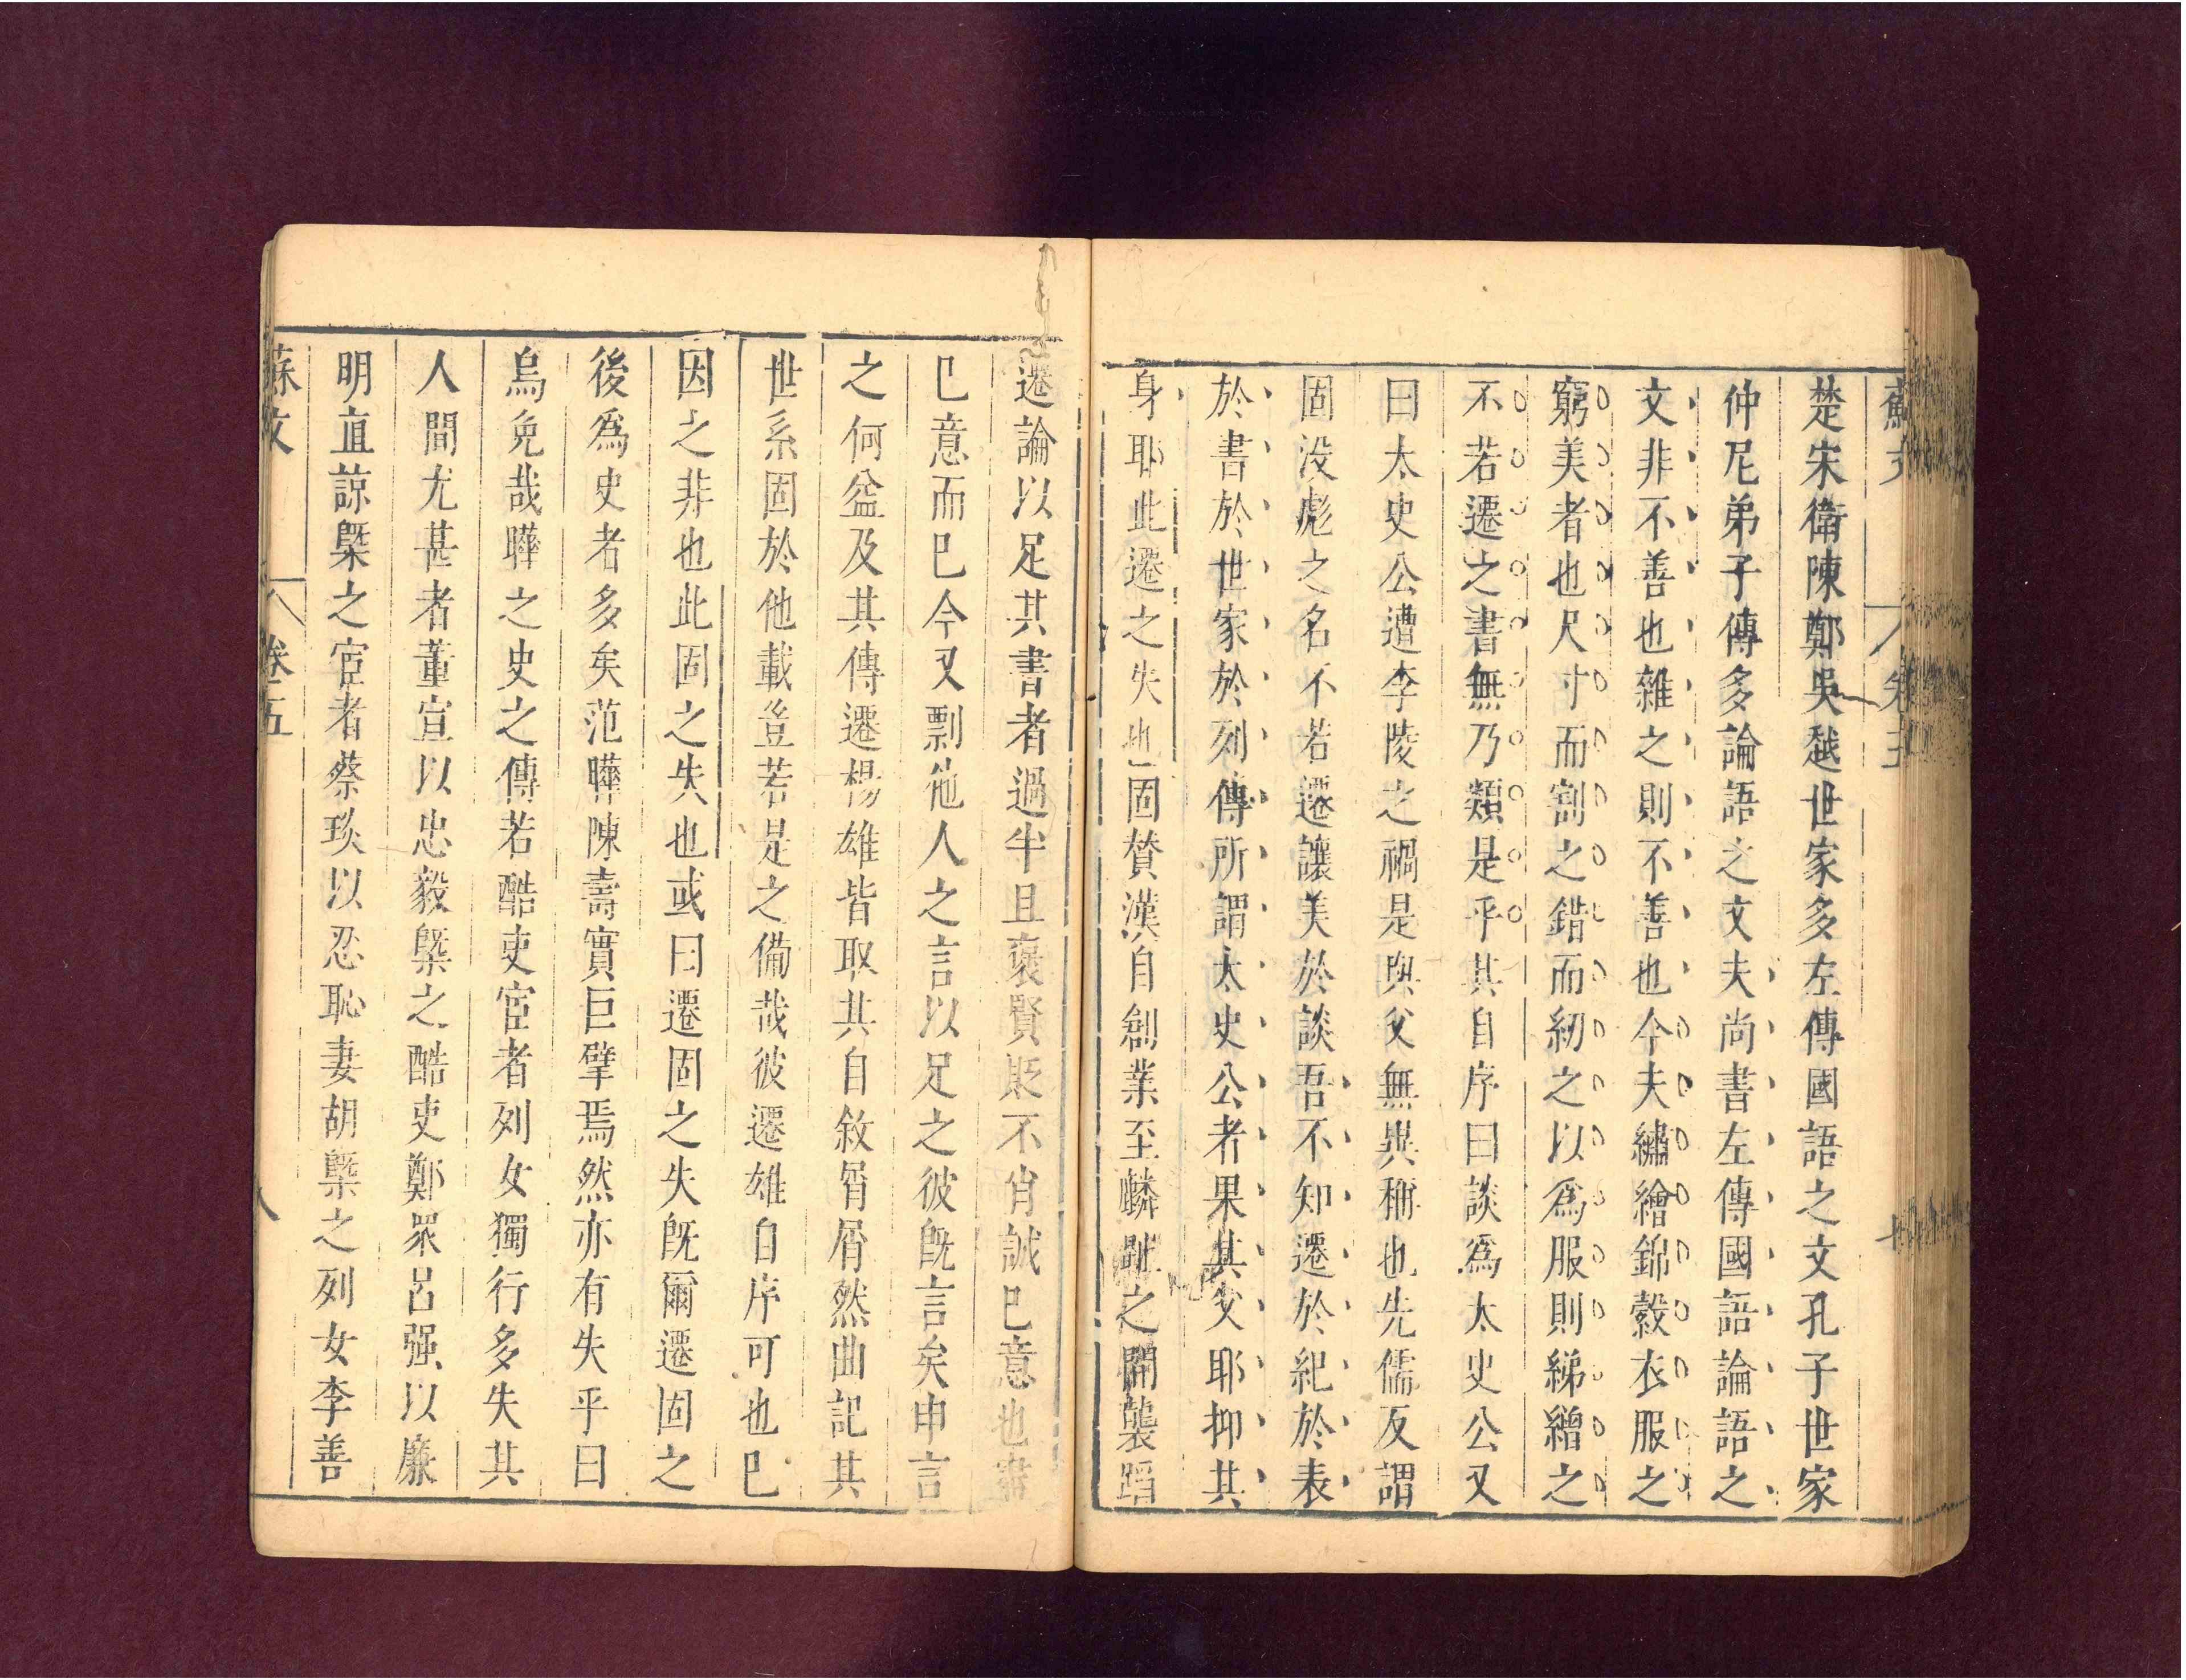 蘇文 卷五 七
楚宋衛陳鄭吳越世家多左傳國語之文孔子世家
仲尼弟子傳多論語之文夫尚書左傳國語論語之
文非不善也雜之則不善也今夫繡繪錦縠衣服之
窮美者也尺寸而割之錯而紉之以爲服則綈繒之
不若遷之書無乃類是乎其自序曰談爲太史公又
曰太史公遭李陵之禍是與父無異稱也先儒反謂
固沒彪之名不若遷讓美於談吾不知遷於紀於表
於書於世家於列傳所謂太史公者果其父耶抑其
身耶此遷之失也固贊漢自創業至麟趾之間襲蹈
遷論以足其書者過半且褒賢貶不肖誠已意也盡
已意而已今又剽他人之言以足之彼旣言矣申言
之何益及其傳遷楊雄皆取其自敘屑屑然曲記其
世系固於他載豈若是之備哉彼遷雄自序可也已
因之非也此固之失也或曰遷固之失旣爾遷固之
後爲史者多矣范曄陳壽實巨擘焉然亦有失乎曰
烏免哉曄之史之傳若酷吏宦者列女獨行多失其
人間尤甚者董宣以忠毅槩之酷吏鄭眾呂强以廉
明直諒槩之宦者蔡琰以忍恥妻胡槩之列女李善
蘇文 卷五 八